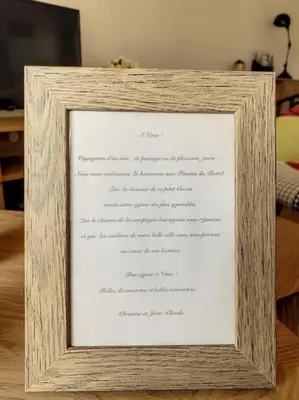 A Vous !
Voyageurs d'un soir, de passage ou de plaisance, pour
Nous vous souhaitons la bienvenue aux Pensées du Bastel
Que la douceur de ce petit Cocon
rende votre séjour des plus agréables
Que le charme de la campagne vous réjouisse
et que les couleurs de notre belle ville vous transportent
au cœur de son histoire
Bon séjour à Vous !
Belles découvertes et belles rencontres
Christine et Jean-Claude